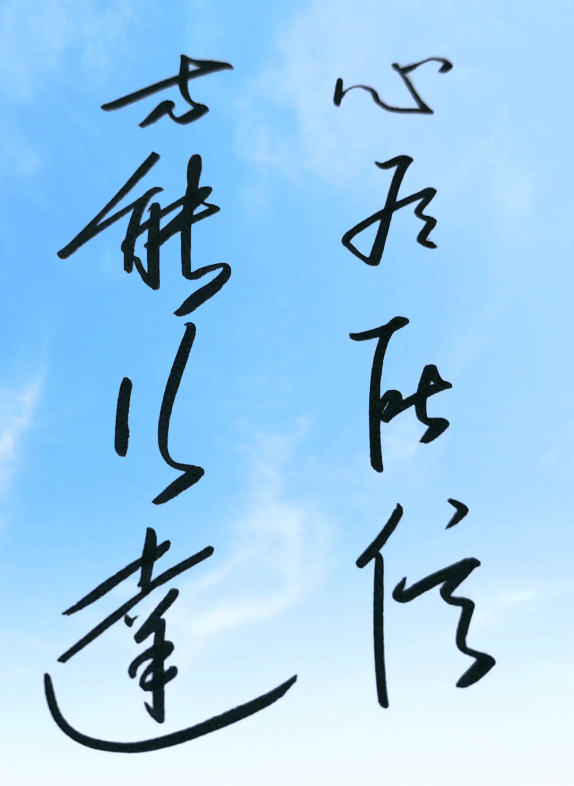 心有所信
方能行達